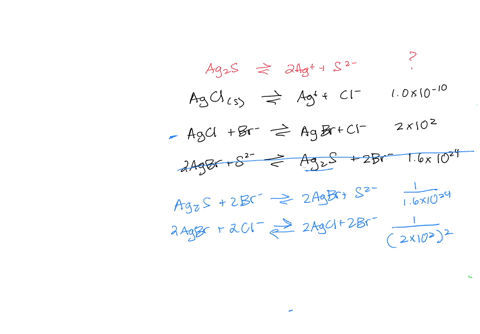 Ag₂S ⇌ 2Ag⁺ + S²⁻ ?
AgCl(s) ⇌ Ag⁺ + Cl⁻ 1.0×10-10
AgCl + Br⁻ ⇌ AgBr + Cl⁻ 2×10²
2AgBr + S²⁻ ⇌ Ag₂S + 2Br⁻ 1.6×10²⁴
Ag₂S + 2Br⁻ ⇌ 2AgBr + S²⁻ 1/1.6×10²⁴
2AgBr + 2Cl⁻ ⇌ 2AgCl + 2Br⁻ 1/(2×10²)²